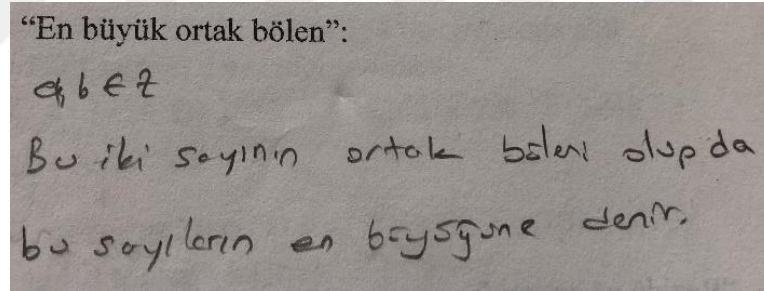 “En büyük ortak bölen”:
a, b ∈ Z
Bu iki sayının ortak böleni olup da
bu sayıların en büyüğüne denir.